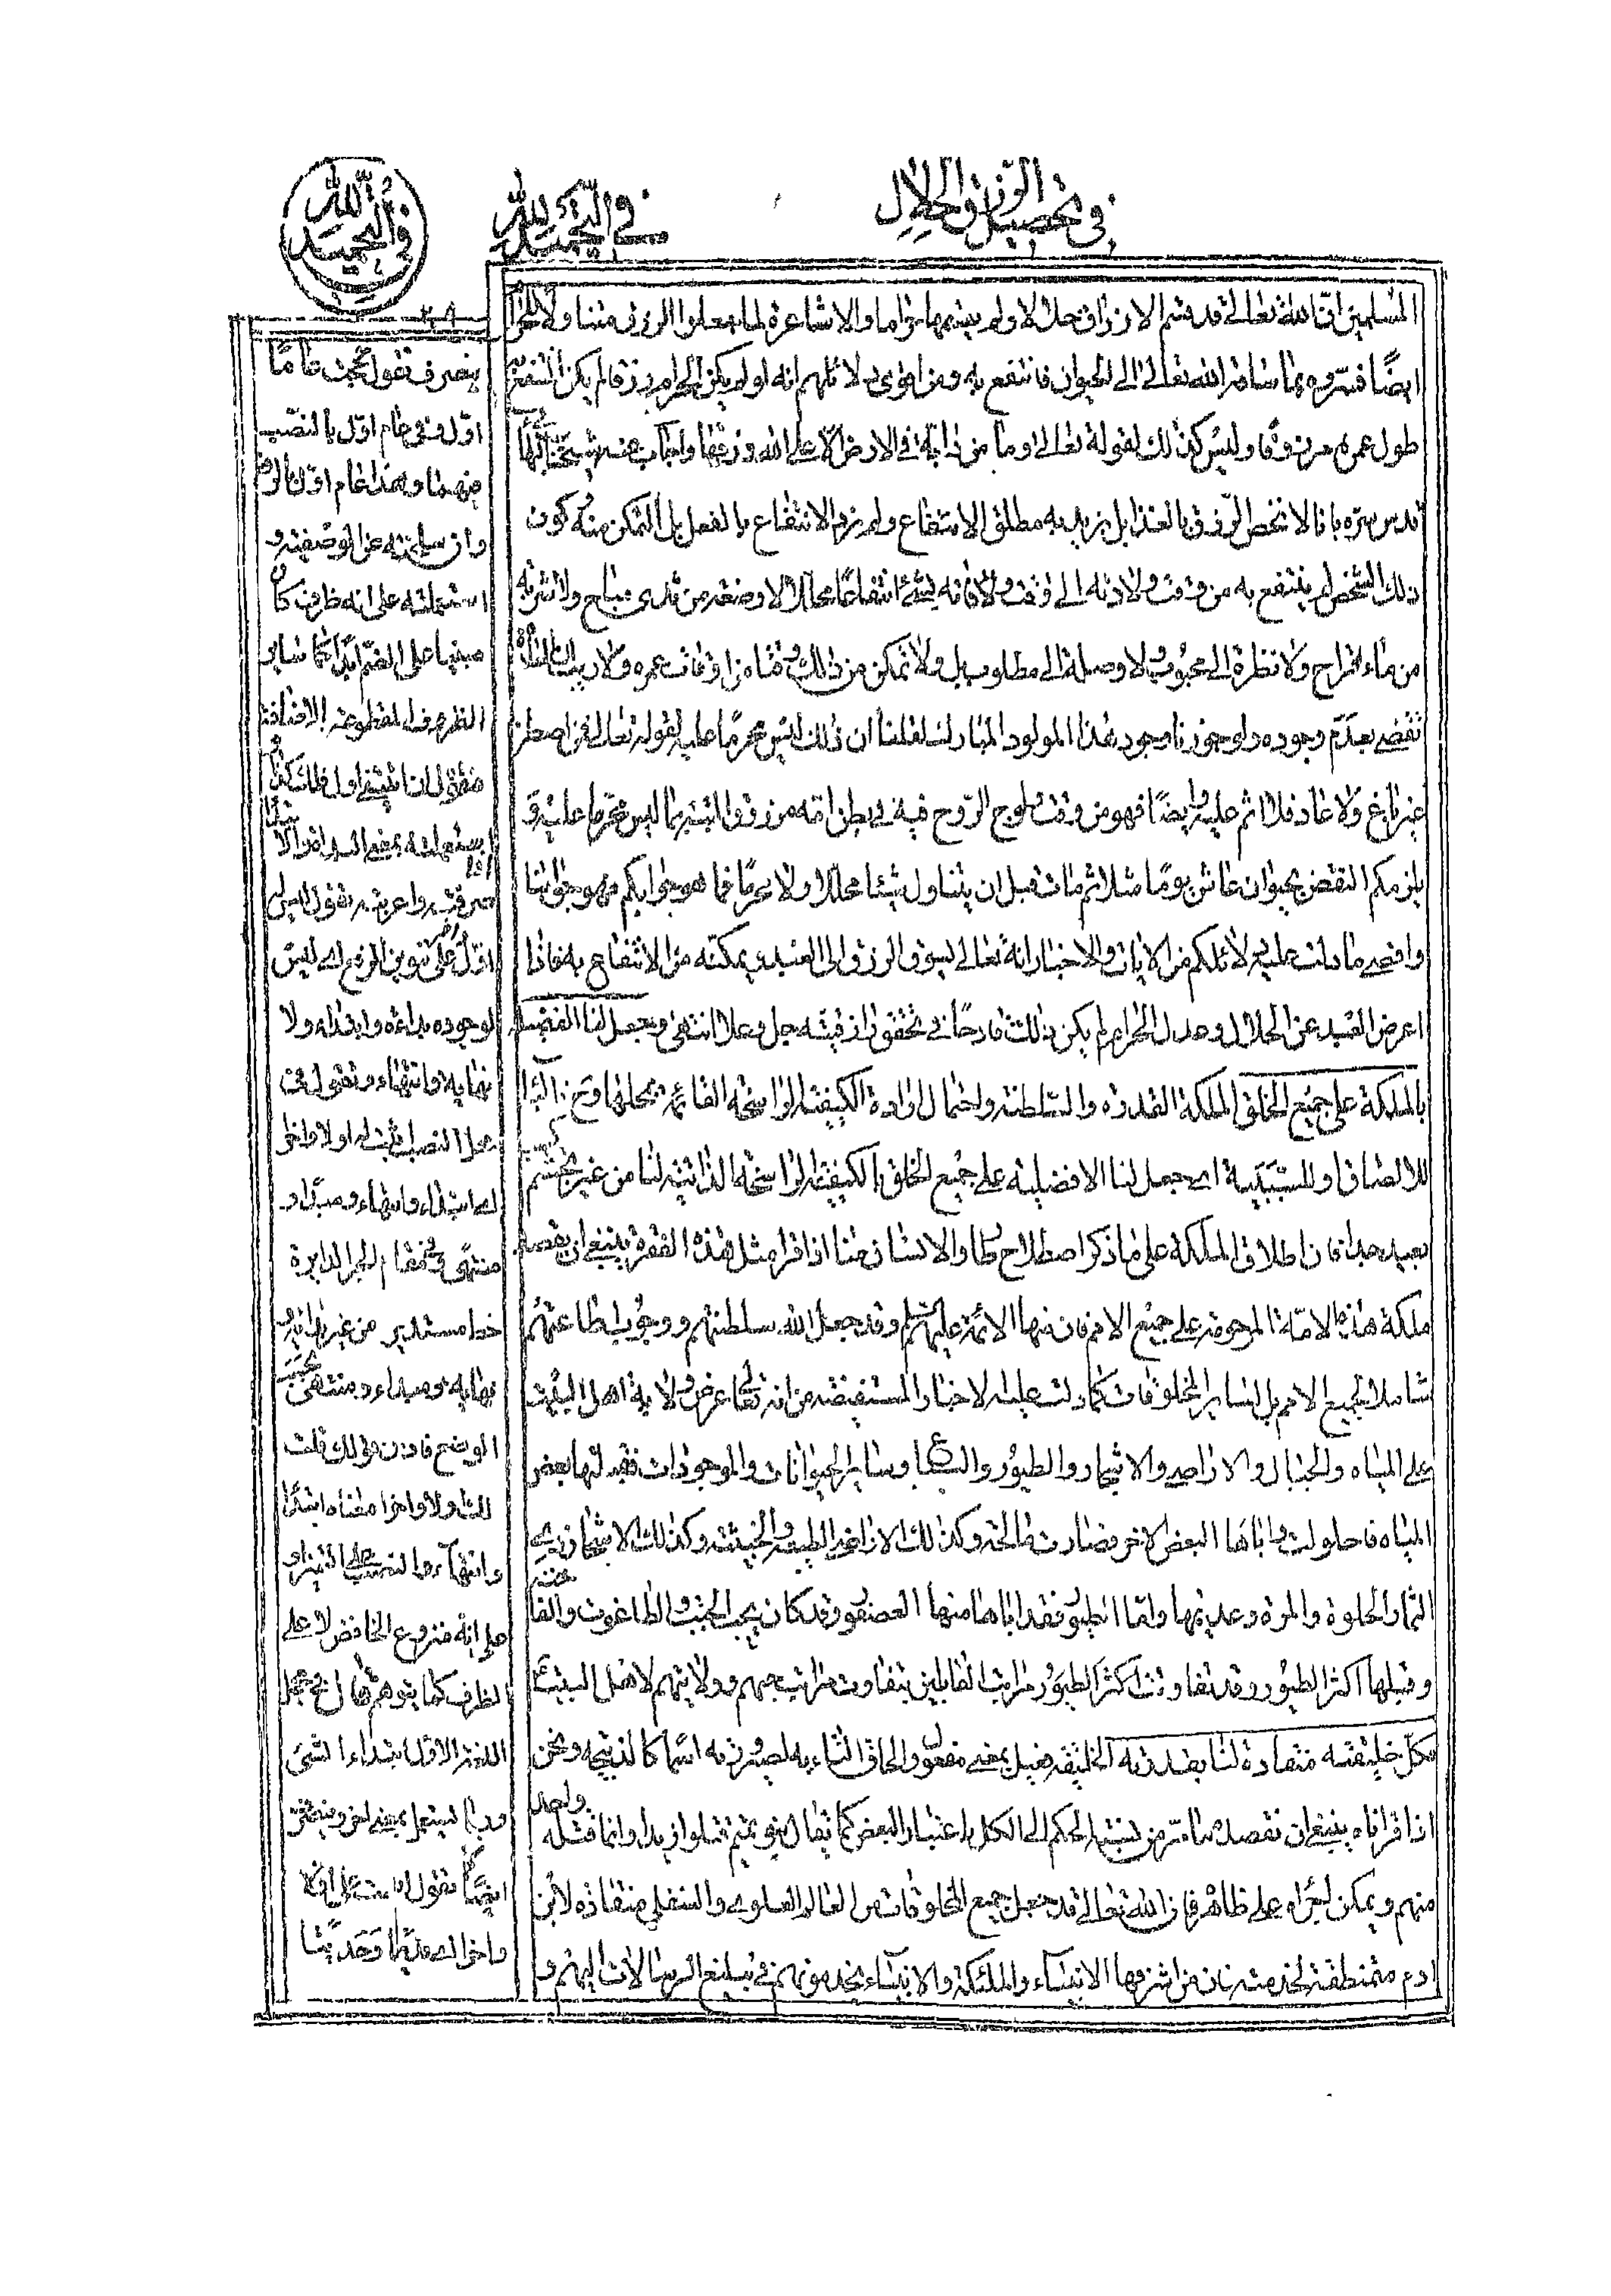 في تحصيل الرزق الحلال
في التحميد لله
في التحميد لله
المسلمين ان الله تعالى قد قسم الارزاق حلالا ولم يقسمها حراما والاشاعرة لما جعلوا الرزق متناولا للحرام
ايضا فسروه بما ساقه الله تعالى الى الحيوان فانتفع به ومن اقوى دلائلهم انه لو لم يكن الحرام رزقا لم يكن المتغذي
طول عمره مرزوقا وليس كذلك لقوله تعالى وما من دابة في الارض الا على الله رزقها واجاب عنه شيخنا البهائي
قدس سره بانا لا نخص الرزق بالغذا بل نريد به مطلق الانتفاع ولم نرد الانتفاع بالفعل بل التمكن منه كون
ذلك الشخص لم ينتفع به من وقت ولادته الى وقت بشيء انتفاعا محللا لا رضعه من ثدي مباح ولا شربة
من ماء قراح ولا نظرة الى محبوب ولا وصلة الى مطلوب بل ولا تمكن من ذلك وقتا من اوقات عمره ولا ريب ان العادة
تقضي بعدم وجوده ولو جوزنا وجود هذا المولود المبارك لقلنا ان ذلك ليس محرما عليه لقوله تعالى فمن اضطر
غير باغ ولا عاد فلا اثم عليه وايضا فهو من وقت ولوج الروح فيه في بطن امه مرزوق البتة بما ليس محرما عليه و
يلزمكم النقض بحيوان عاش يوما مثلا ثم مات قبل ان يتناول شيئا محللا ولا محرما فما هو جوابكم فهو جوابنا
واقصى ما دلت عليه دلائلكم من الايات والاخبار انه تعالى يسوق الرزق الى العبد ويمكنه من الانتفاع به فاذا
اعرض العبد عن الحلال وعدل الى الحرام لم يكن ذلك قادحا في تحقق رازقيته جل وعلا انتهى وجعل لنا الفضيلة
بالملكة على جميع الخلق الملكة القدرة والسلطنة واحتمال ارادة الكيفية الراسخة القائمة بمحلها وح فالباء
للالصاق او للسببية اي جعل لنا الافضلية على جميع الخلق بالكيفية الراسخة الذاتية لنا من غير تجشم
بعيد جدا فان اطلاق الملكة على ما ذكر اصطلاح طار والانسان منا اذا قرا مثل هذه الفقرة ينبغي ان يقصد
ملكة هذه الامة المرحومة على جميع الامم فان فيها الائمة عليهم السلم وقد جعل الله سلطنتهم ووجوب اطاعتهم
شاملة لجميع الامم بل لساير المخلوقات كما دلت عليه الاخبار المستفيضة من انه تعالى عرض ولاية اهل البيت
على المياه والجبال والاراضي والاشجار والطيور والسباع وساير الحيوانات والموجودات فقبلتها بعض
المياه فاحلولت واباها البعض الاخر فصارت مالحة وكذلك الاراضي الطيبة والخبيثة وكذلك الاشجار ذوي
الثمار الحلوة والمرة وعديمها واما الطيور فقد اباها منها العصفور وقد كان يحب الجبت والطاغوت والفاختة
وقبلها اكثر الطيور وقد تفاوتت اكثر الطيور مراتب القابلين بتفاوت مراتب حبهم وولايتهم لاهل البيت ع
فكل خليقته منقادة لنا بقدرته الخليقة فعيل بمعنى مفعول والحاق التاء به لصيرورته اسما كالذبيحة ونحن
اذا قراناه ينبغي ان نقصد ما مر من نسبة الحكم الى الكل باعتبار البعض كما يقال بنو تميم قتلوا زيدا وانما قتله واحد
منهم ويمكن اجراه على ظاهره فان الله تعالى قد جعل جميع المخلوقات من العالم العلوي والسفلي منقادة لابن
ادم متمنطقة لخدمته فان من اشرفها الانبياء والملئكة والانبياء يخدمونهم في تبليغ الرسالات اليهم و
ينصرف تقول حججت عاما
اول وفي عام اول بالنصب
فيهما وهذا عام اول بالرفع
وان سلبته عن الوصفية و
استعملته على انه ظرف كان
مبنيا على الضم ابدا كما ساير
الظروف المقطوعة الاضافة
استعملته بمعنى
صرفته واعربته تقول ليس له
اول على تنوين الرفع اي ليس
لوجوده بداءة وابتداء ولا
نهاية وانتهاء وتقول في
محل النصب اثبت له اولا واخرا
اي ابتداء وانتهاء ومبدا و
منتهى وفي مقام الجر الدايرة
خط مستدير من غير بداية و
نهاية ومبداء ومنتهى بحسب
الوضع فاذن قولك قلت
لك اولا واخرا معناه ابتداء
وانتهاء والنصب على التميز او
على انه منزوع الخافض لا على
الظرف كما يتوهم قال في مجمل
اللغة الاول ابتداء الشيء
وربما يستعمل بمعنى اخر
ايضا تقول
واخرا اي قديما وحديثا